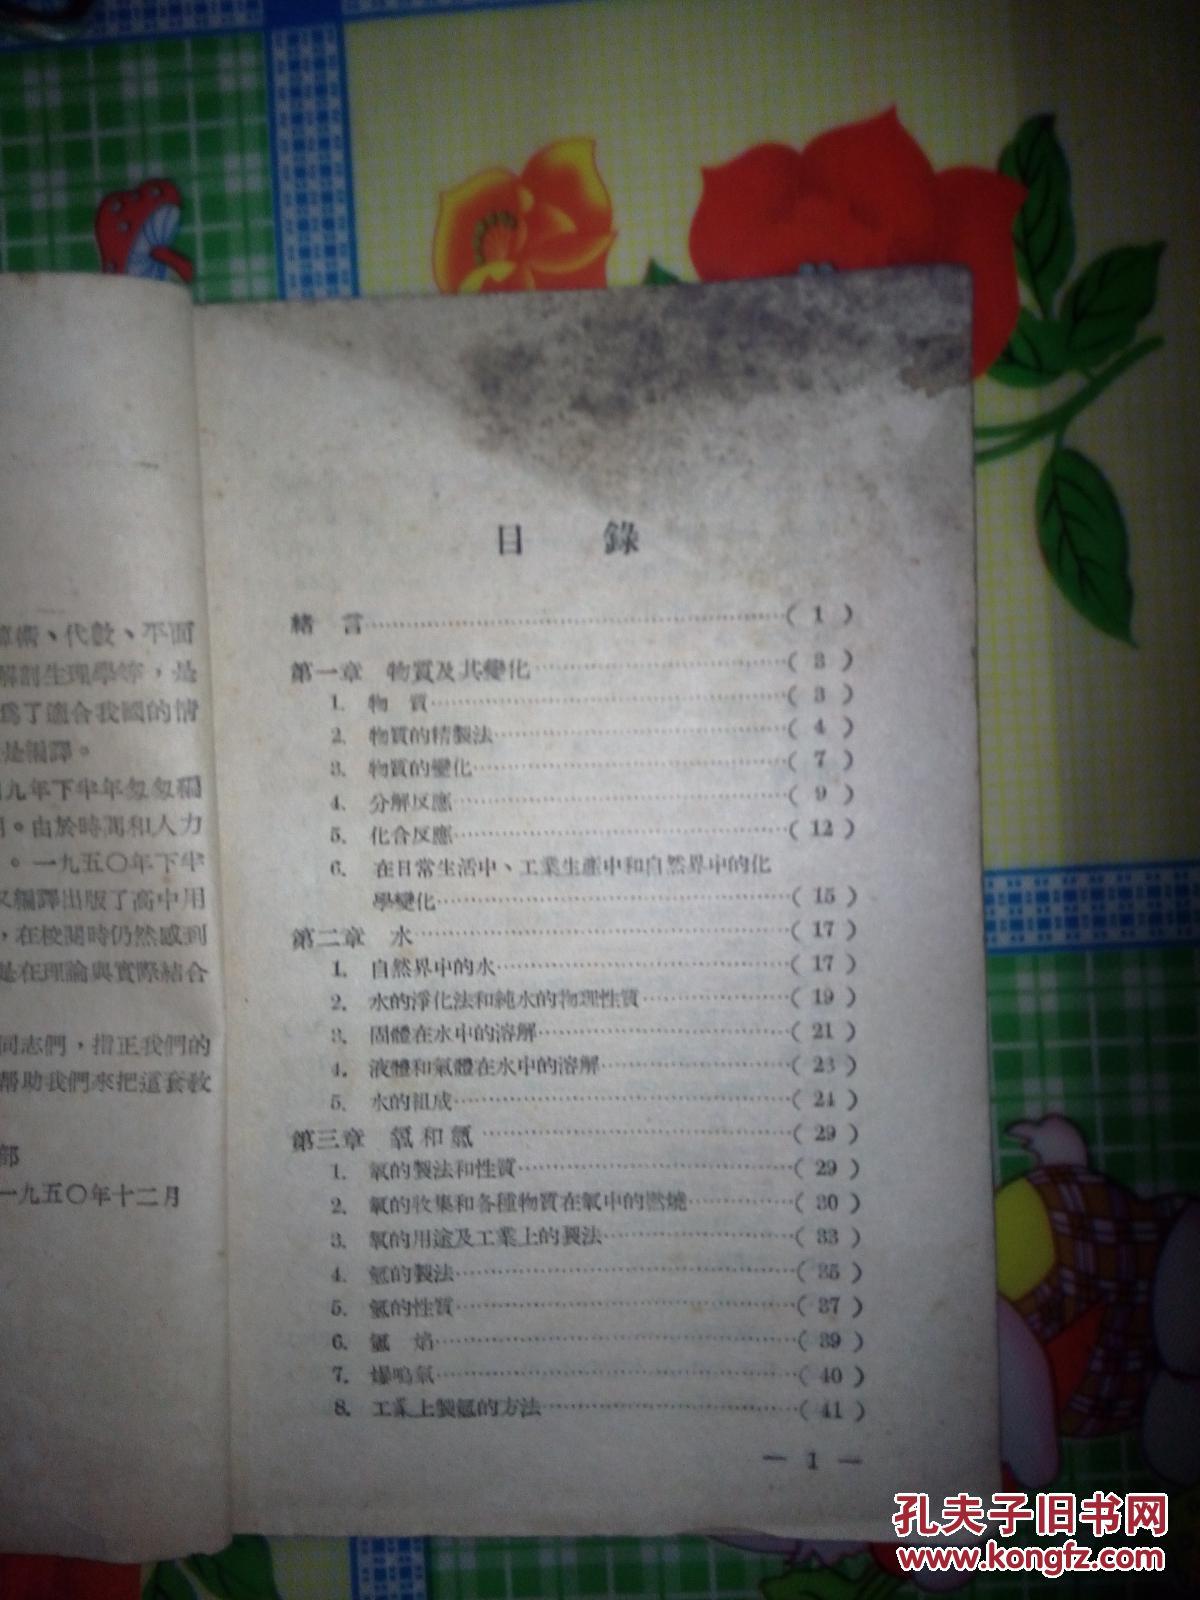 算術、代數、平面
解剖生理學等，是
爲了適合我國的情
是編譯。
九年下半年匆匆編
用。由於時間和人力
。一九五〇年下半
又編譯出版了高中用
，在校閱時仍然感到
是在理論與實際結合
同志們，指正我們的
幫助我們來把這套教
部
一九五〇年十二月
目 錄
緒 言……………………………………( 1 )
第一章 物質及其變化……………………( 3 )
1. 物 質……………………………( 3 )
2. 物質的精製法……………………( 4 )
3. 物質的變化………………………( 7 )
4. 分解反應…………………………( 9 )
5. 化合反應…………………………( 12 )
6. 在日常生活中、工業生產中和自然界中的化
學變化……………………………( 15 )
第二章 水…………………………………( 17 )
1. 自然界中的水……………………( 17 )
2. 水的淨化法和純水的物理性質……( 19 )
3. 固體在水中的溶解………………( 21 )
4. 液體和氣體在水中的溶解…………( 23 )
5. 水的組成…………………………( 24 )
第三章 氧和氫……………………………( 29 )
1. 氧的製法和性質…………………( 29 )
2. 氧的收集和各種物質在氧中的燃燒…( 30 )
3. 氧的用途及工業上的製法…………( 33 )
4. 氫的製法…………………………( 35 )
5. 氫的性質…………………………( 37 )
6. 氫 焰……………………………( 39 )
7. 爆鳴氣……………………………( 40 )
8. 工業上製氫的方法………………( 41 )
— 1 —
孔夫子旧书网
www.kongfz.com